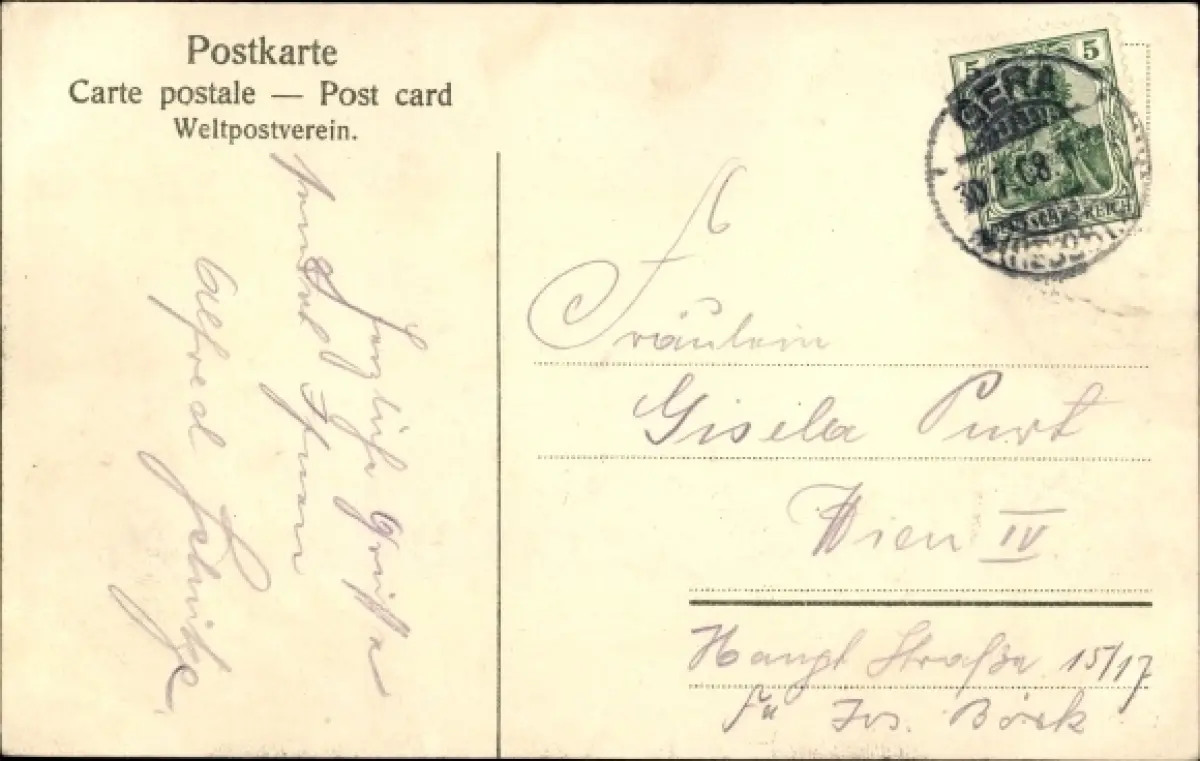 Postkarte
Carte postale — Post card
Weltpostverein.
Herzliche Grüße
sendet Ihnen
Alfred
5 5
GERA
30 7 08
REICH
Fräulein
Gisela Purt
Wien IV
Haupt Straße 15/17
Jos. Böck